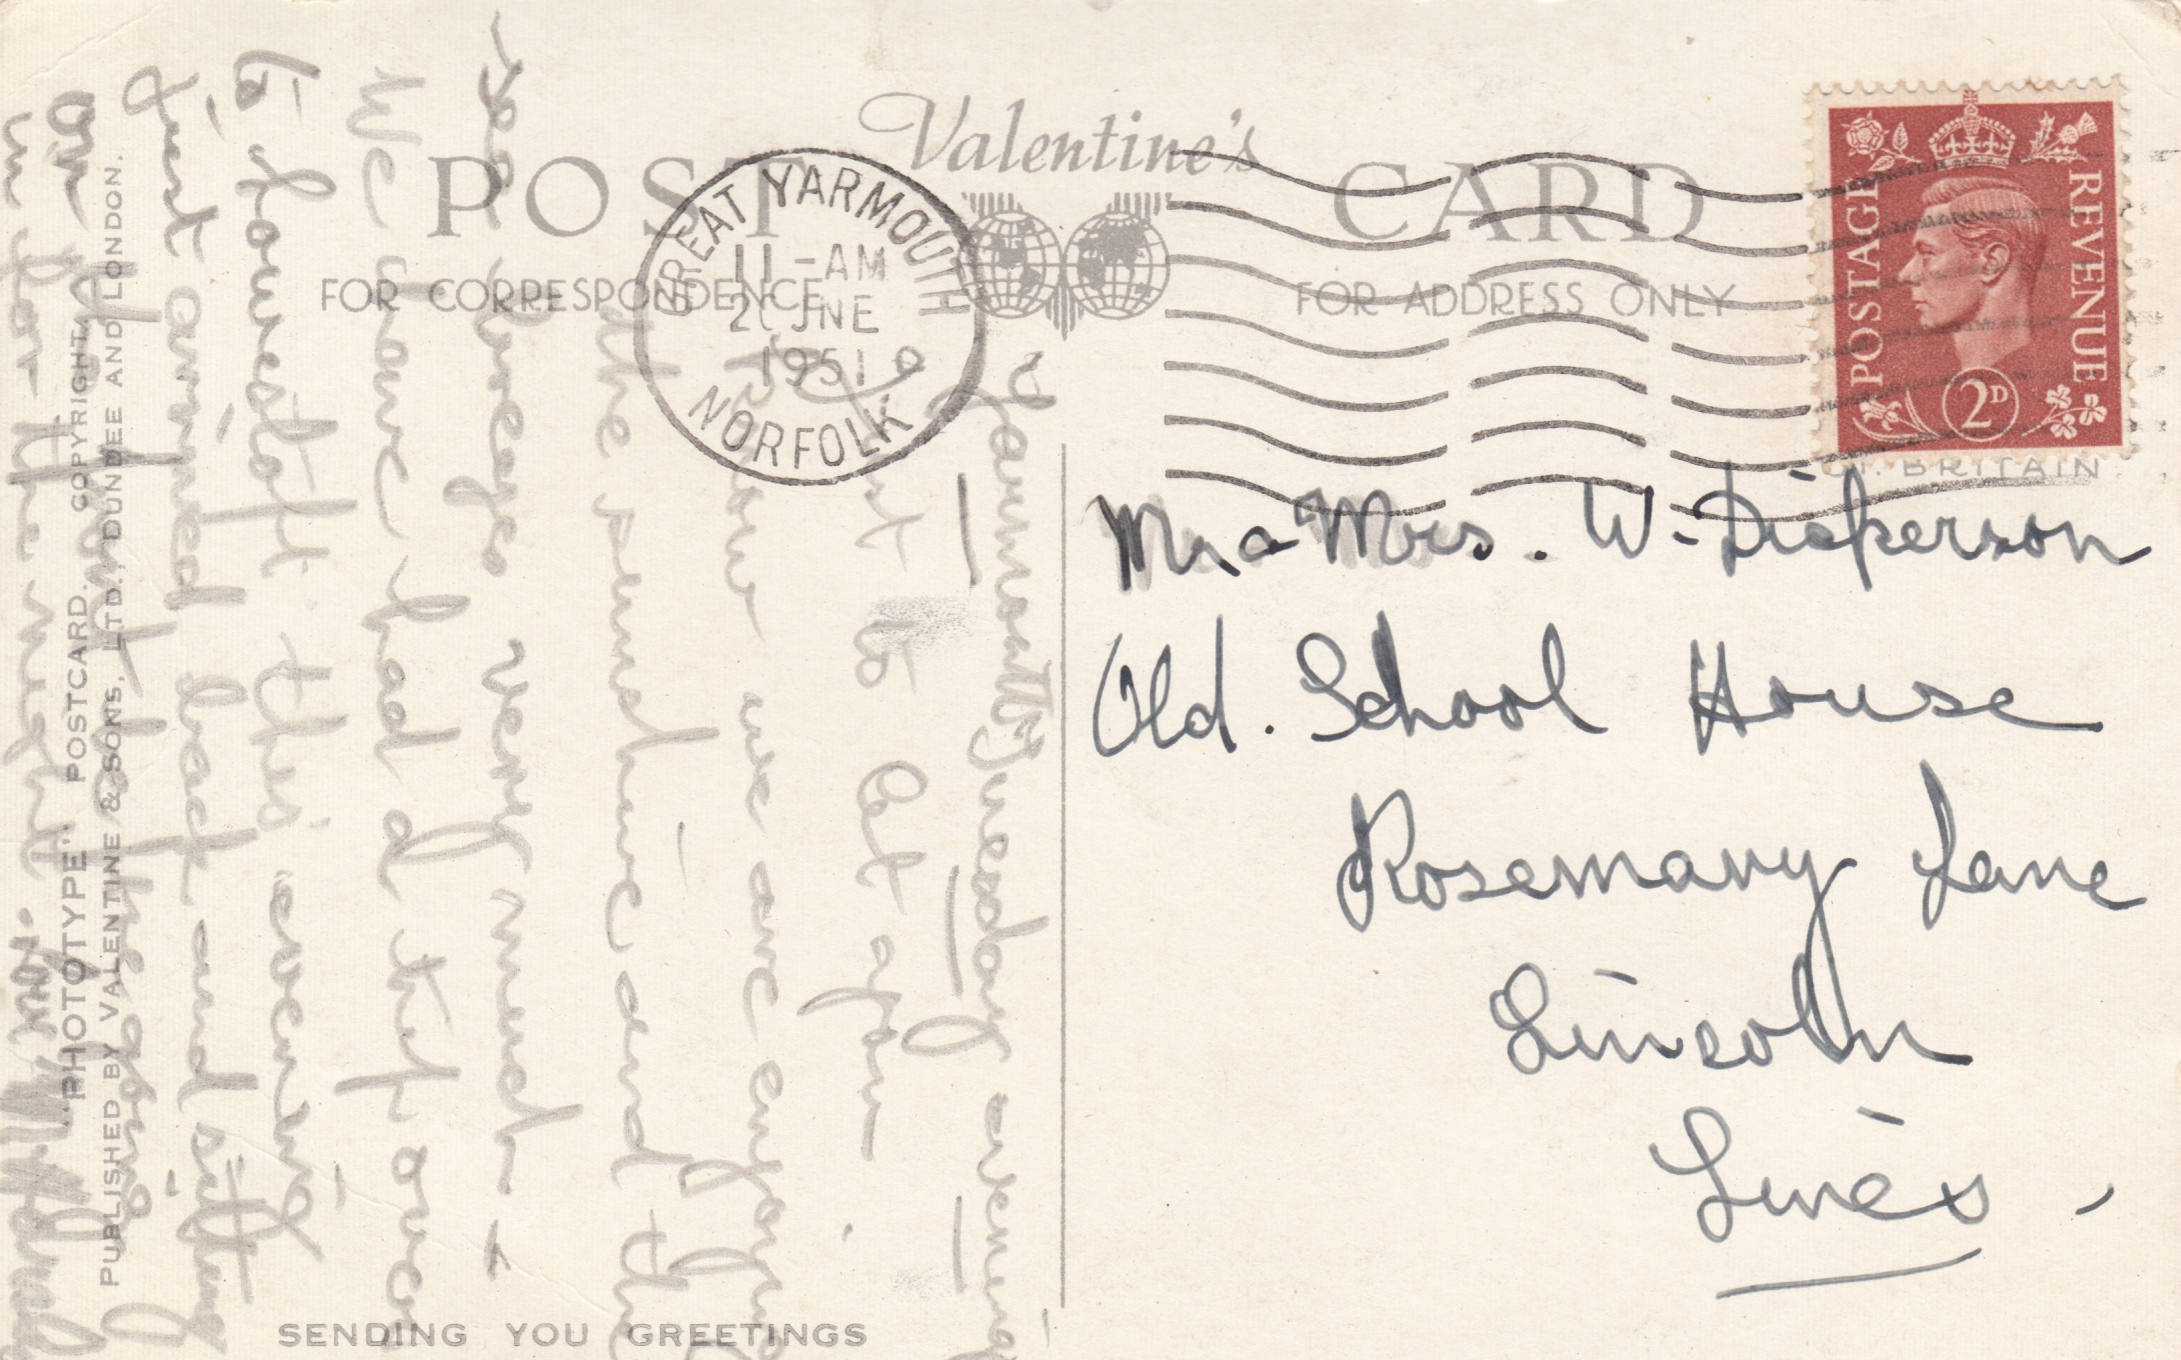 Valentine's
POST CARD
FOR CORRESPONDENCE
FOR ADDRESS ONLY
GREAT YARMOUTH
11-AM
JNE
1951
NORFOLK
POSTAGE
REVENUE
2D
GT. BRITAIN
Mr. a Mrs. W. Dickerson
Old. School House
Rosemary Lane
Lincoln
Lincs.
Yarmouth Tuesday evening
Just to let you
know we are enjoying
the sunshine and the
sea breezes very much
We have had a trip over
to Lowestoft this evening
just arrived back and sitting
on the
in for the night. love
"PHOTOTYPE" POSTCARD. COPYRIGHT.
PUBLISHED BY VALENTINE & SONS, LTD., DUNDEE AND LONDON.
SENDING YOU GREETINGS